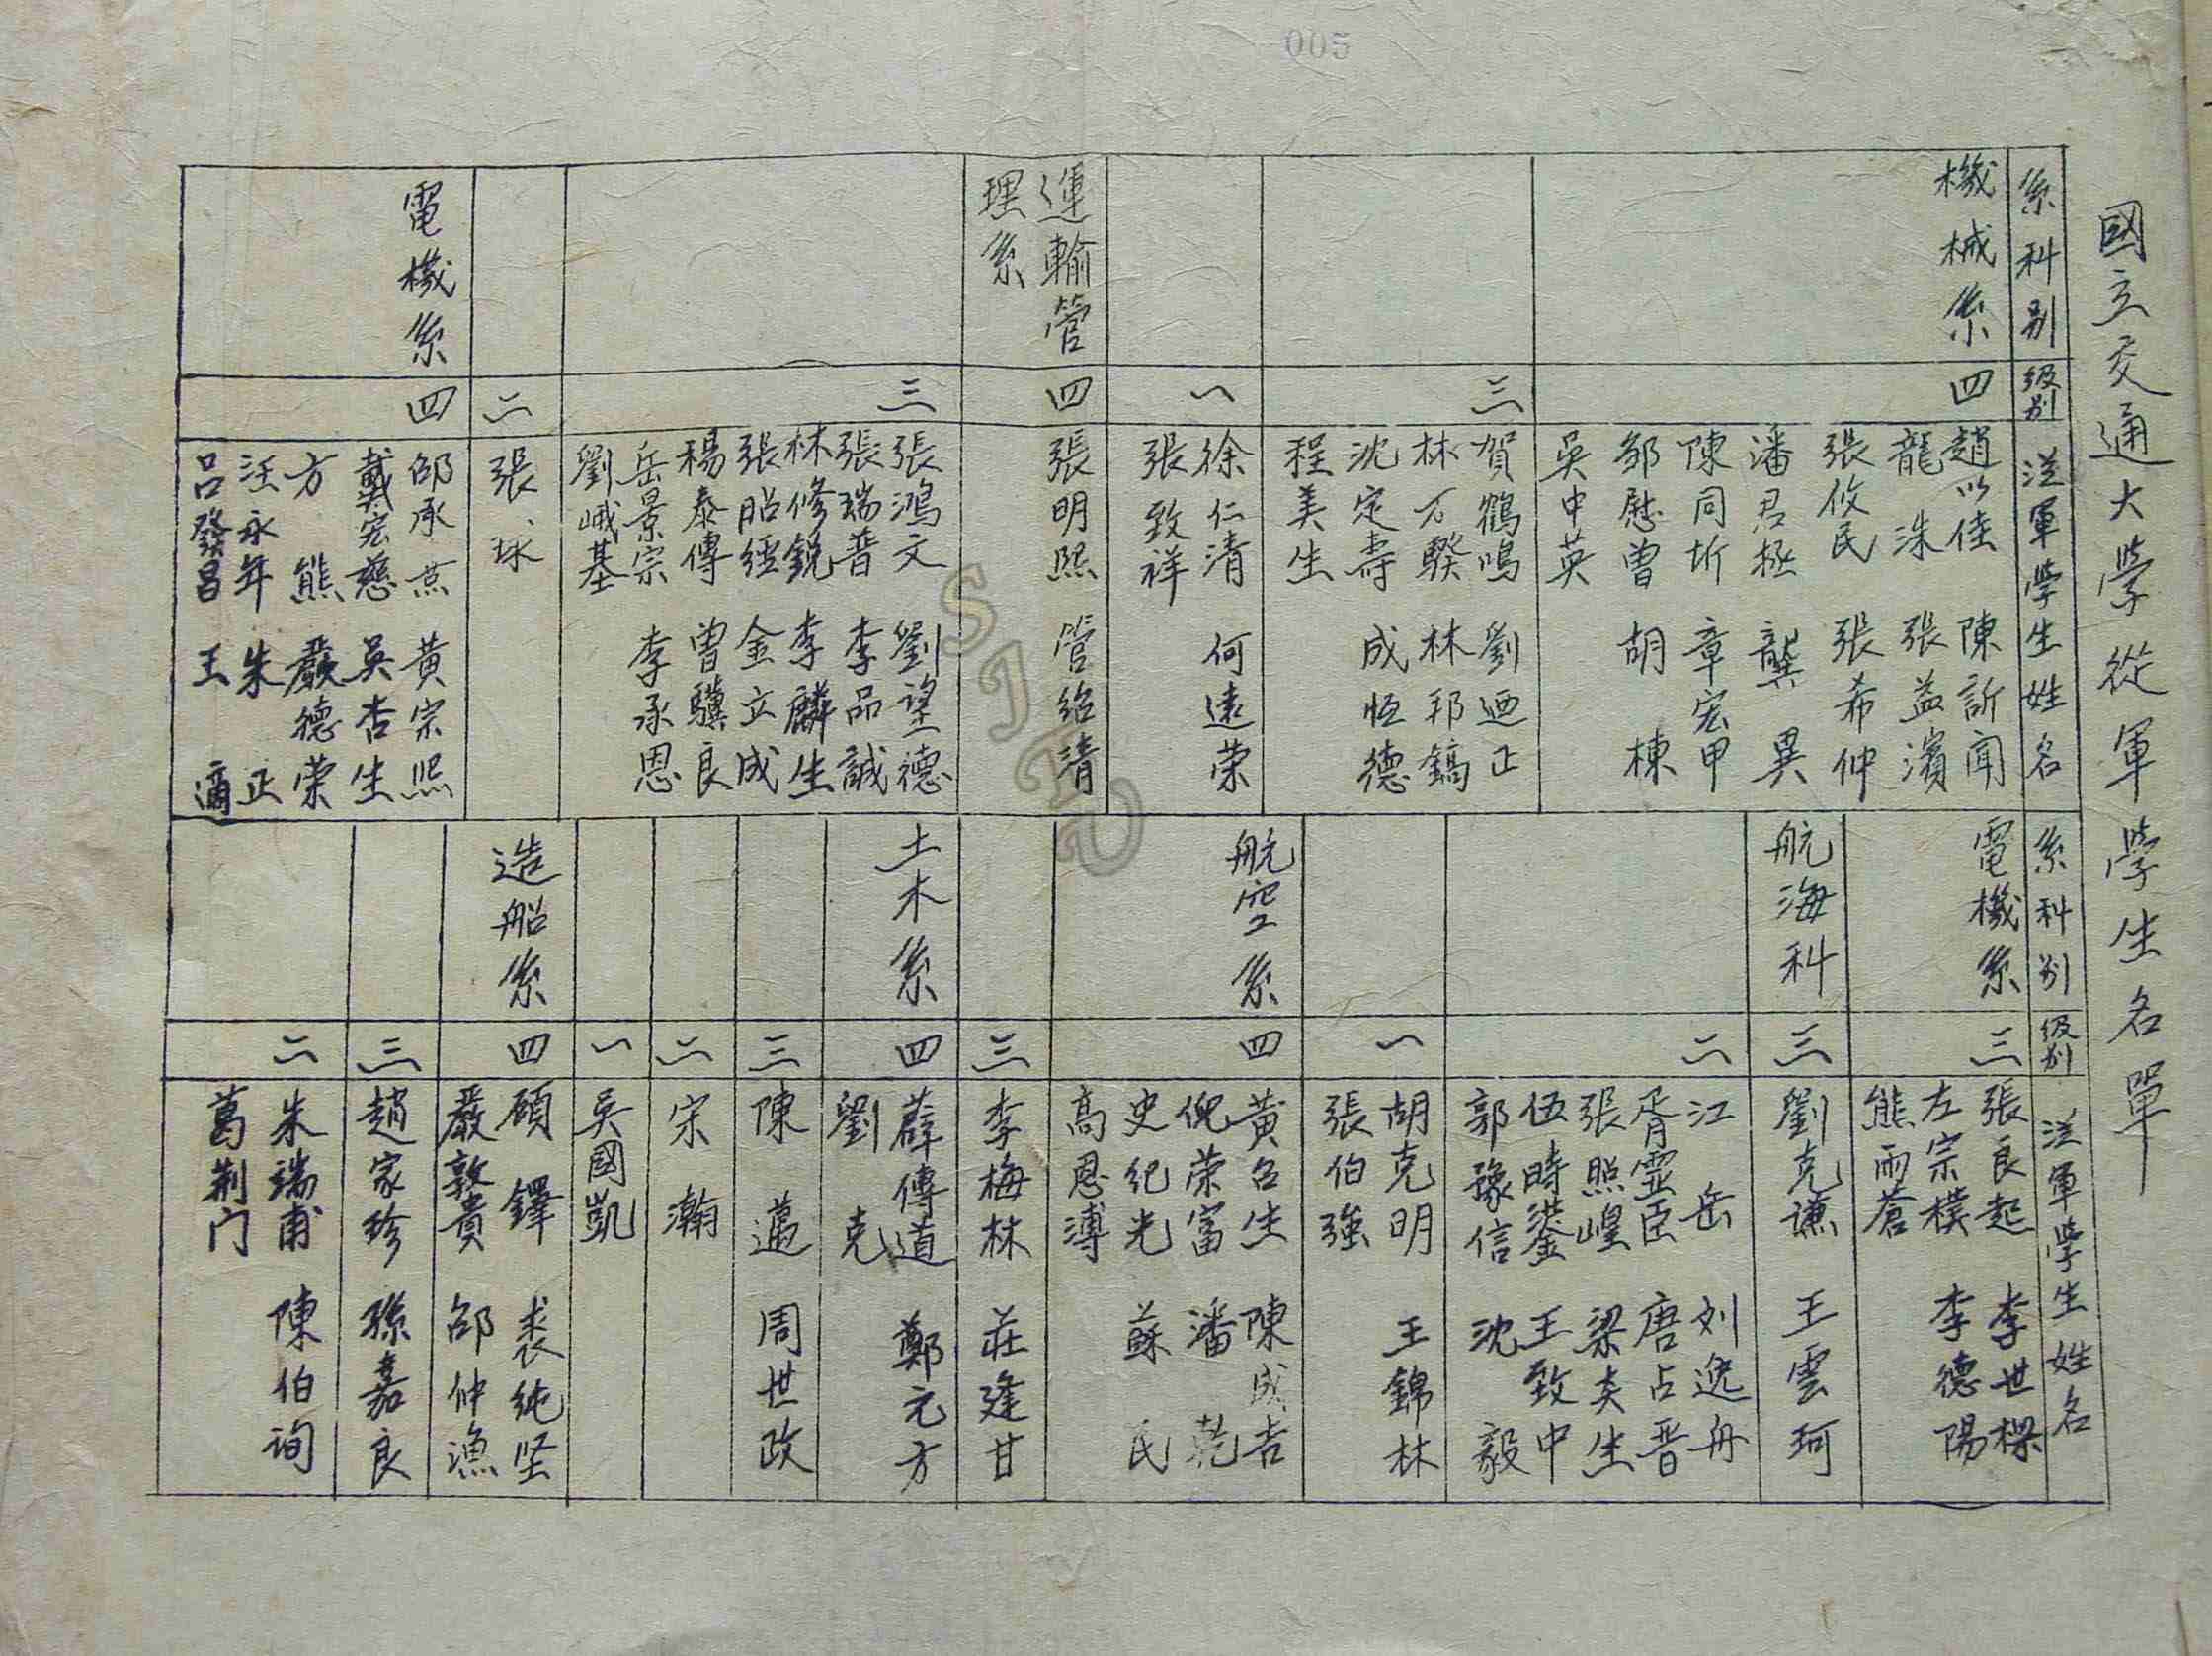 005
國立交通大學從軍學生名單
系科別
级别
從軍學生姓名
機械系
四
趙以佳 陳訢聞
龍洙 張益濱
張攸民 張希仲
潘君拯 龔異
陳同圻 章宏甲
邹慰曾 胡棟
吳中英
三
賀鶴鳴 劉迺正
林万騤 林邦鎬
沈定壽 成恆德
程美生
一
徐仁清 何遠荣
張致祥
運輸管
理系
四
張明熙 管紹清
三
張鴻文 劉望德
張瑞晋 李品誠
林修銳 李麟生
張昭經 金立成
楊泰傳 曾驥良
岳景宗 李承恩
劉峨基
二
張球
電機系
四
邵承 黄宗熙
戴宏慈 吳杏生
方熊 嚴德荣
汪永年 朱正
吕發昌 王適
系科别
级别
從軍學生姓名
電機系
三
張良起 李世樑
左宗樸 李德陽
熊雨蒼
航海科
三
劉克谦 王雲珂
二
江岳 刘逸舟
胥霊臣 唐占晋
張照煌 梁炎生
伍時鎏 王致中
郭豫信 沈毅
一
胡克明 王錦林
張伯強
航空系
四
黄召生 陳成吉
倪荣富 潘乾
史纪光 蘇民
高恩溥
三
李梅林 莊逢甘
土木系
四
薛傳道 鄭元方
劉克
三
陳邁 周世政
二
宋瀚
一
吳國凱
造船系
四
顾鐸 裘纯坚
嚴敦貴 邵仲漁
三
趙家珍 孫嘉良
二
朱瑞甫 陳伯询
葛荆门
SJTU